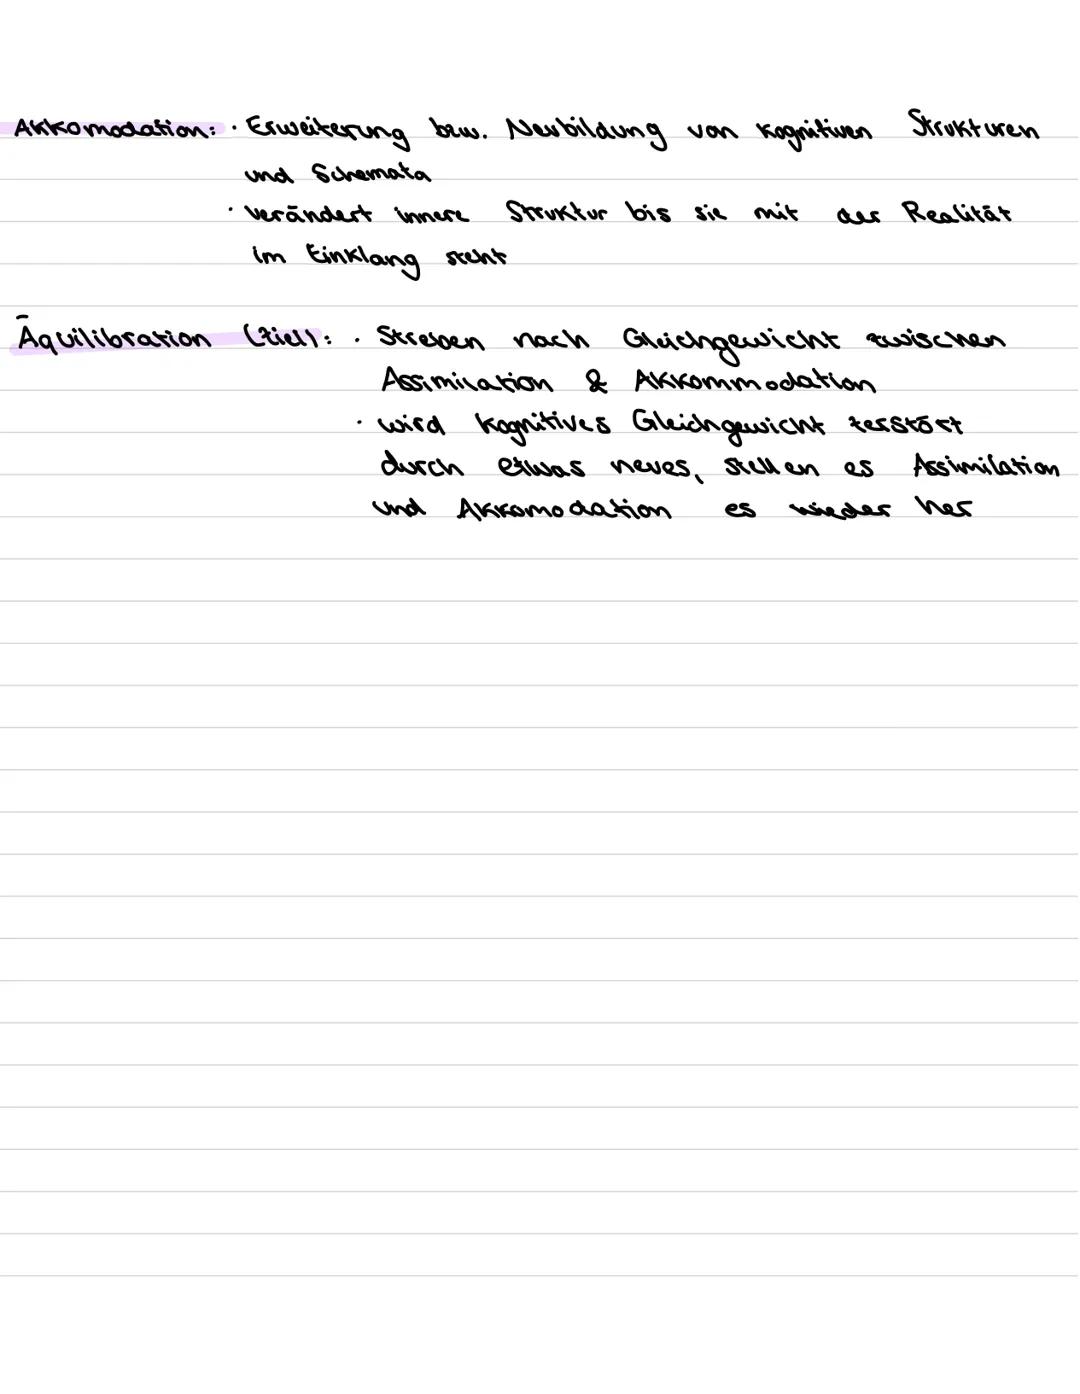 Akkomodation: · Erweiterung bzw. Neubildung von kognitiven Strukturen
und Schemata
· verändert innere Struktur bis sie mit der Realität
im Einklang steht
Äquilibration (Ziel): · Streben nach Gleichgewicht zwischen
Assimilation & Akkommodation
· wird kognitives Gleichgewicht zerstört
durch etwas neues, stellen es Assimilation
und Akkomodation es wieder her